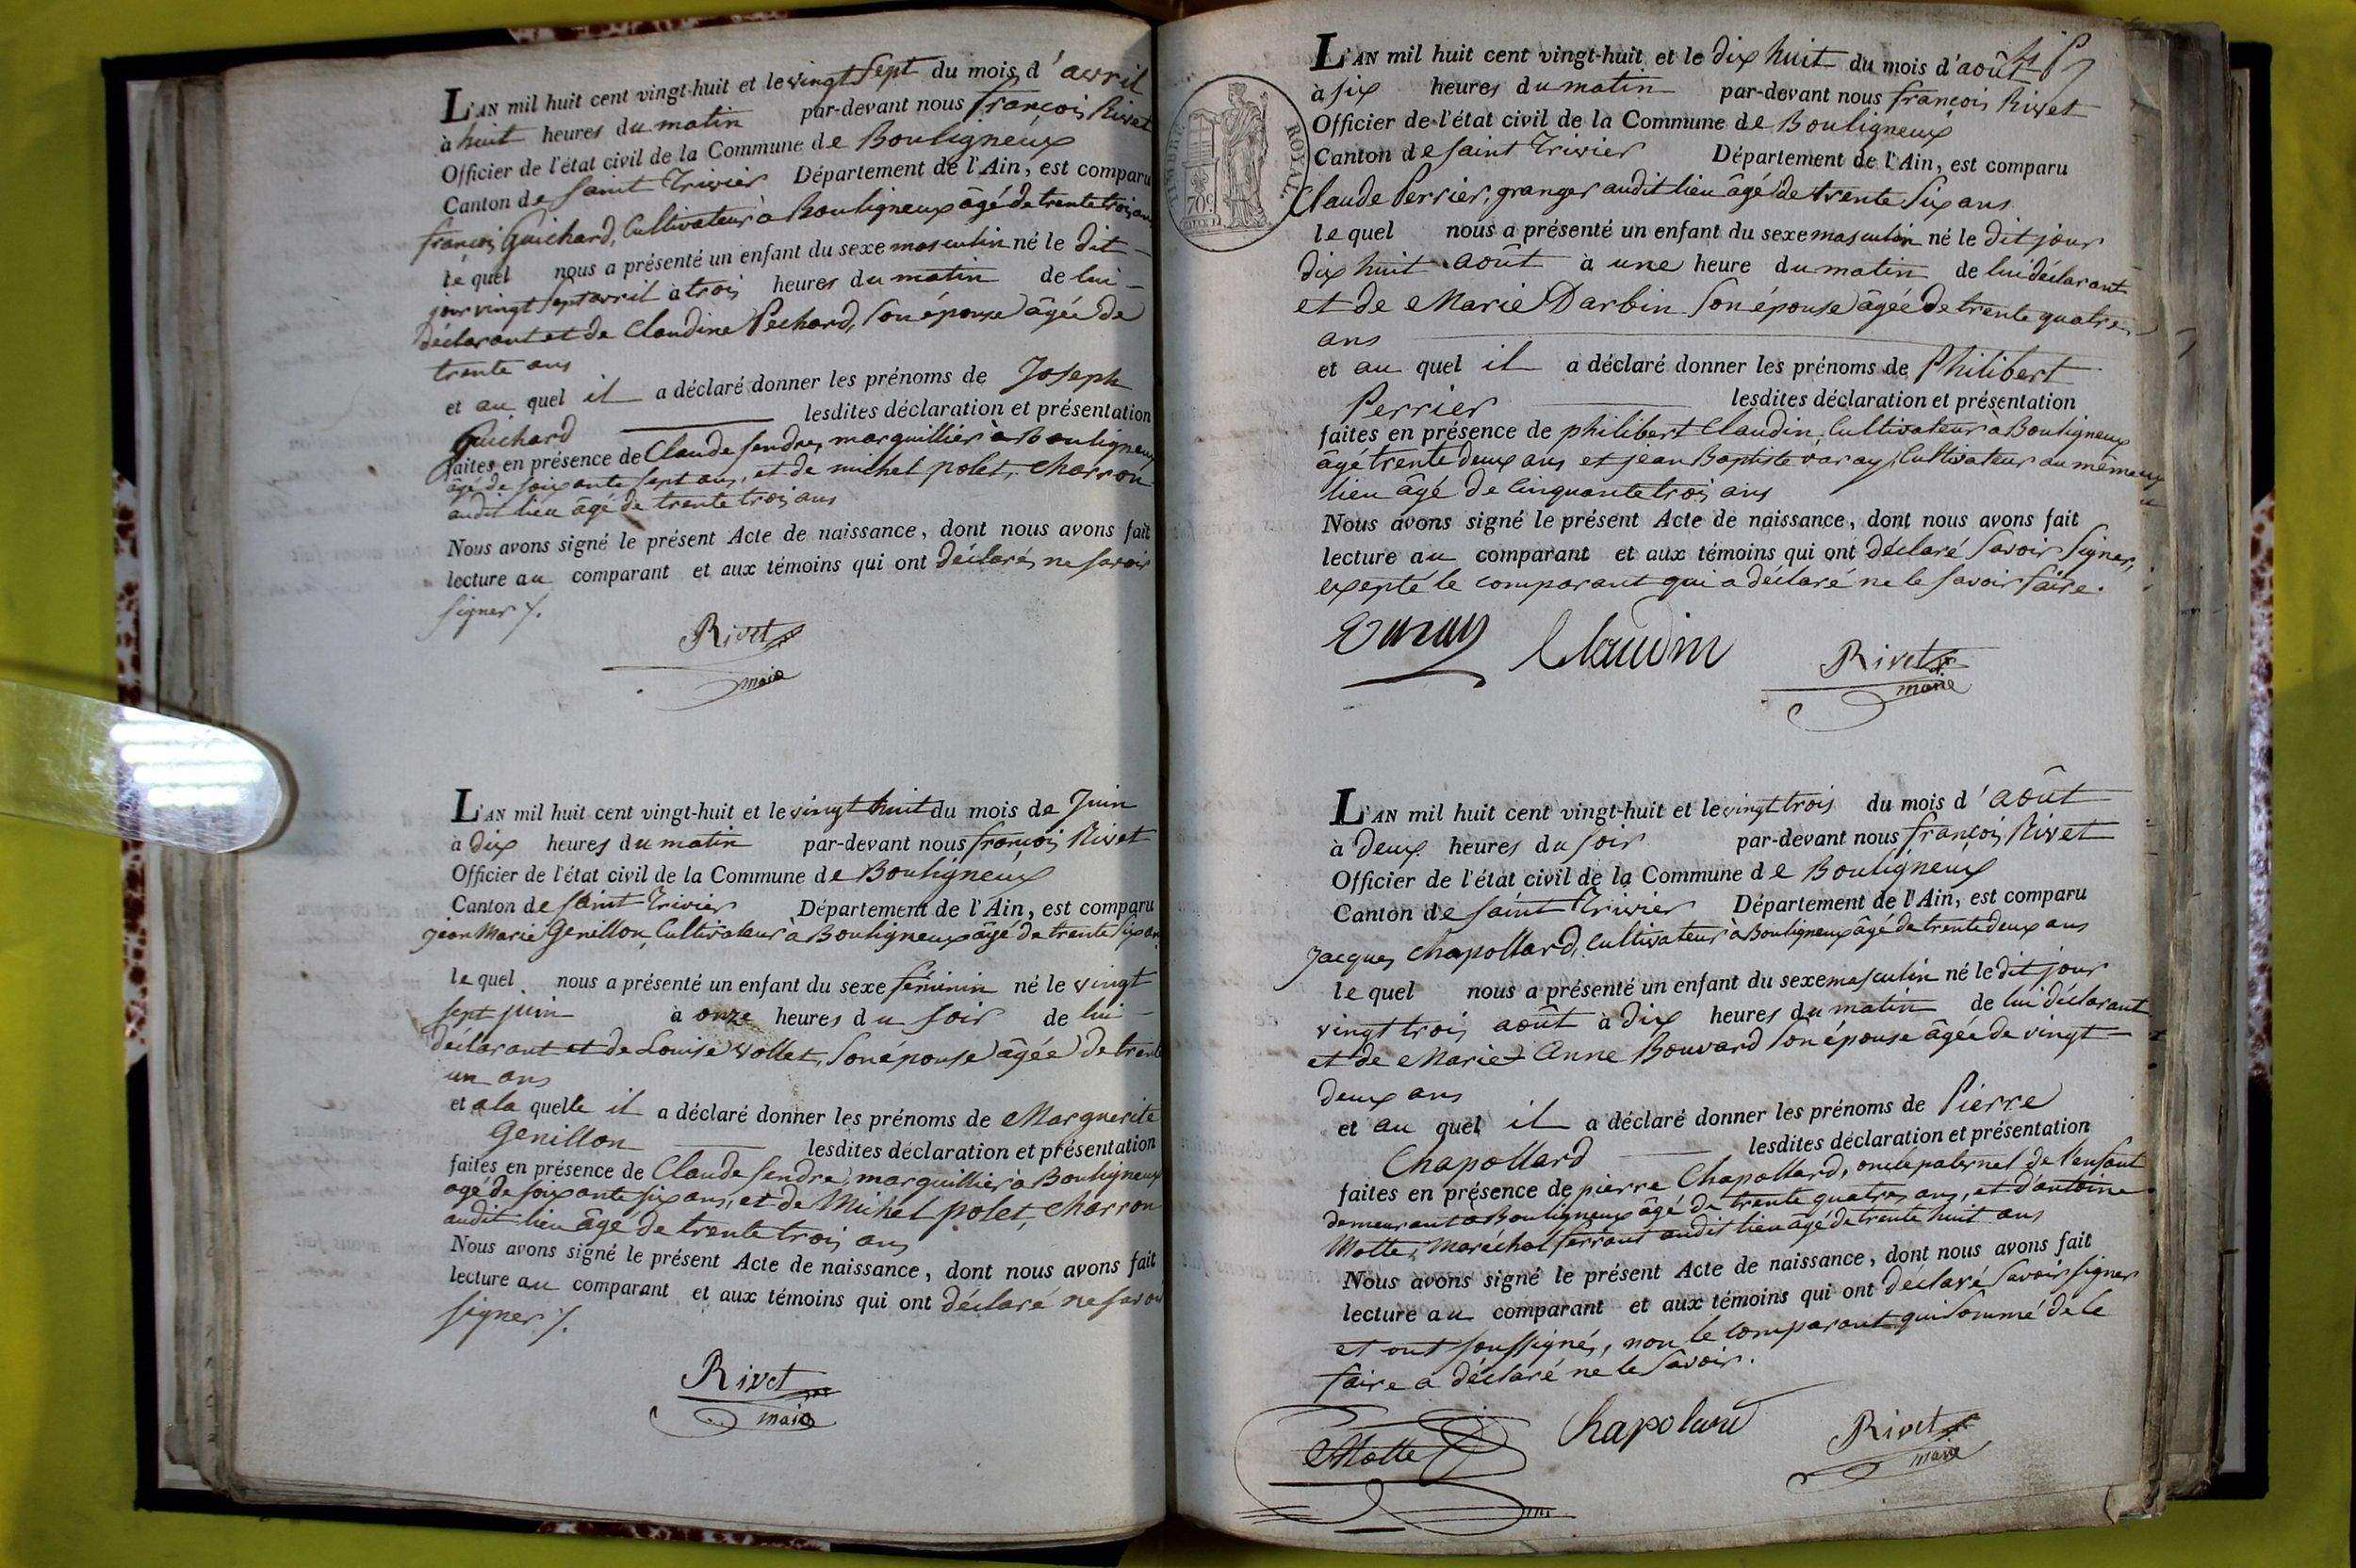 L'AN mil huit cent vingt-huit et le vingt sept du mois d'avril
à huit heures du matin par-devant nous françois Rivet
Officier de l'état civil de la Commune de Bouligneux
Canton de saint Trivier Département de l'Ain, est comparu
françois Guichard, Cultivateur à Bouligneux âgé de trente trois ans
le quel nous a présenté un enfant du sexe masculin né le dit
jour vingt sept avril à trois heures du matin de lui
déclarant et de Claudine Pechard, son épouse âgée de
trente ans
et au quel il a déclaré donner les prénoms de Joseph
Guichard lesdites déclaration et présentation
faites en présence de Claude sendre, marguillier à Bouligneux
âgé de soixante sept ans, et de michel polet, charron
audit lieu âgé de trente trois ans
Nous avons signé le présent Acte de naissance, dont nous avons fait
lecture au comparant et aux témoins qui ont déclaré ne savoir
signer /.
Rivet
maire
L'AN mil huit cent vingt-huit et le vingt huit du mois de Juin
à dix heures du matin par-devant nous françois Rivet
Officier de l'état civil de la Commune de Bouligneux
Canton de saint Trivier Département de l'Ain, est comparu
jean Marie Genillon, Cultivateur à Bouligneux âgé de trente six ans
le quel nous a présenté un enfant du sexe féminin né le vingt
sept juin à onze heures du soir de lui
déclarant et de Louise Vollet, son épouse âgée de trente
un ans
et a la quelle il a déclaré donner les prénoms de Marguerite
Genillon lesdites déclaration et présentation
faites en présence de Claude sendre, marguillier à Bouligneux
agé de soixante six ans, et de Michel polet, charron
audit lieu âgé de trente trois ans
Nous avons signé le présent Acte de naissance, dont nous avons fait
lecture au comparant et aux témoins qui ont déclaré ne savoir
signer /.
Rivet
maire
L'AN mil huit cent vingt-huit et le dix huit du mois d'août
à six heures du matin par-devant nous françois Rivet
Officier de l'état civil de la Commune de Bouligneux
Canton de saint Trivier Département de l'Ain, est comparu
Claude Perrier, granger audit lieu âgé de trente six ans
le quel nous a présenté un enfant du sexe masculin né le dit jour
dix huit août à une heure du matin de lui déclarant
et de Marie Darbin son épouse âgée de trente quatre
ans
et au quel il a déclaré donner les prénoms de Philibert
Perrier lesdites déclaration et présentation
faites en présence de philibert Claudin, Cultivateur a Bouligneux
âgé trente deux ans et jean Baptiste varay, Cultivateur au même
lieu âgé de Cinquante trois ans
Nous avons signé le présent Acte de naissance, dont nous avons fait
lecture au comparant et aux témoins qui ont déclaré savoir signer,
exepté le comparant qui a déclaré ne le savoir faire.
Varay Claudin Rivet
maire
TIMBRE ROYAL
70c
L'AN mil huit cent vingt-huit et le vingt trois du mois d'août
à deux heures du soir par-devant nous françois Rivet
Officier de l'état civil de la Commune de Bouligneux
Canton de saint Trivier Département de l'Ain, est comparu
Jacques Chapollard, Cultivateur à Bouligneux âgé de trente deux ans
le quel nous a présenté un enfant du sexe masculin né le dit jour
vingt trois août à dix heures du matin de lui déclarant
et de Marie Anne Bouvard son épouse âgée de vingt
deux ans
et au quel il a déclaré donner les prénoms de Pierre
Chapollard lesdites déclaration et présentation
faites en présence de pierre Chapollard, oncle paternel de l'enfant
demeurant à Bouligneux âgé de trente quatre ans, et d'antoine
Motte, Maréchal ferrant audit lieu âgé de trente huit ans
Nous avons signé le présent Acte de naissance, dont nous avons fait
lecture au comparant et aux témoins qui ont déclaré savoir signer
et ont soussignés, non le comparant qui sommé de le
faire a déclaré ne le savoir.
Motte Chapolard Rivet
maire